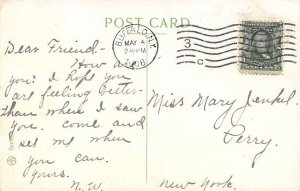 POST CARD
BUFFALO, N.Y.
MAY 4
1908
3
C
Dear Friend:-
How are
you? I hope you
are feeling better
then when I saw
you. Come and
see me when
you can.
Yours.
N. W.
Miss Mary Jenkel.
Perry.
New York.